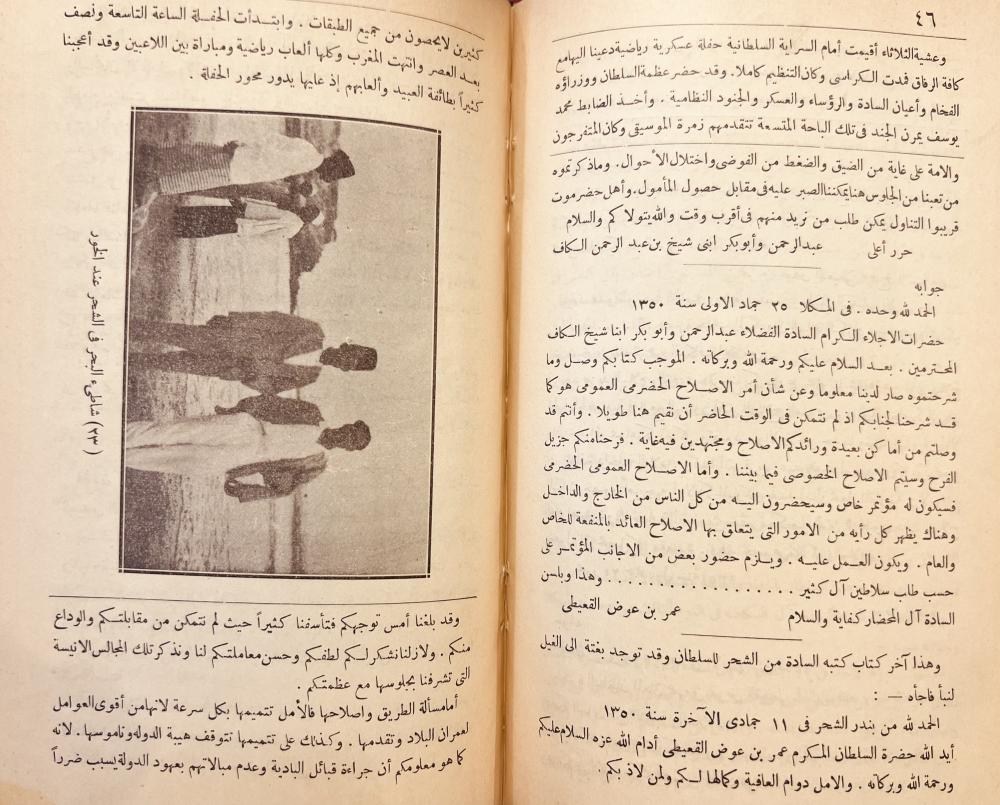 ٤٦
وعشية الثلاثاء أقيمت أمام السراية السلطانية حفلة عسكرية رياضية دعينا اليها مع
كافة الرفاق فمدت الكراسى وكان التنظيم كاملا. وقد حضر عظمة السلطان ووزراؤه
الفخام وأعيان السادة والرؤساء والعسكر والجنود النظامية . وأخذ الضابط محمد
يوسف يمرن الجند فى تلك الباحة المتسعة تتقدمهم زمرة الموسيقى وكان المتفرجون
والامة على غاية من الضيق والضغط من الفوضى واختلال الأحوال. وما ذكرتموه
من تعبنا من الجلوس هنا يمكننا الصبر عليه فى مقابل حصول المأمول. وأهل حضرموت
قريبوا التناول يمكن طلب من نريد منهم فى أقرب وقت والله يتولاكم والسلام
حرر أعلى عبدالرحمن وأبوبكر ابنى شيخ بن عبد الرحمن الكاف
جوابه
الحمد لله وحده . فى المكلا ٢٥ جماد الاولى سنة ١٣٥٠
حضرات الاجلاء الكرام السادة الفضلاء عبدالرحمن وأبو بكر ابنا شيخ الكاف
المحترمين . بعد السلام عليكم ورحمة الله وبركاته . الموجب كتابكم وصل وما
شرحتموه صار لدينا معلوما وعن شأن أمر الاصلاح الحضرمى العمومى هو كما
قد شرحنا لجنابكم اذ لم نتمكن فى الوقت الحاضر أن نقيم هنا طويلا . وأنتم قد
وصلتم من أماكن بعيدة ورائدكم الاصلاح ومجتهدين فيه غاية . فرحنا منكم جزيل
الفرح وسيتم الاصلاح الخصوصى فيما بيننا . وأما الاصلاح العمومى الحضرمى
فسيكون له مؤتمر خاص وسيحضرون اليه من كل الناس من الخارج والداخل
وهناك يظهر كل رأيه من الامور التى يتعلق بها الاصلاح العائد بالمنفعة للخاص
والعام . ويكون العمل عليه . ويلزم حضور بعض من الاجانب المؤتمر على
حسب طلب سلاطين آل كثير . . . . . . . . . . . . . . . . . . وهذا وباسن
السادة آل المحضار كفاية والسلام عمر بن عوض القعيطى
وهذا آخر كتاب كتبه السادة من الشحر للسلطان وقد توجد بغتة الى الغيل
لنبأ فاجأه — :
الحمد لله من بندر الشحر فى ١١ جمادى الآخرة سنة ١٣٥٠
أيد الله حضرة السلطان المكرم عمر بن عوض القعيطى أدام الله عزه السلام عليكم
ورحمة الله وبركاته . والامل دوام العافية وكمالها لكم ولمن لاذ بكم .
كثيرين لايحصون من جميع الطبقات . وابتدأت الحفلة الساعة التاسعة ونصف
بعد العصر وانتهت المغرب وكلها ألعاب رياضية ومباراة بين اللاعبين وقد أعجبنا
كثيراً بطائفة العبيد وألعابهم إذ عليها يدور محور الحفلة .
(٢٣) شاطىء البحر فى الشحر عند الخور
وقد بلغنا أمس توجهكم فتأسفنا كثيراً حيث لم نتمكن من مقابلتكم والوداع
منكم . ولازلنا نشكر لكم لطفكم وحسن معاملتكم لنا ونذكر تلك المجالس الانيسة
التى تشرفنا بجلوسها مع عظمتكم .
أما مسألة الطريق واصلاحها فالأمل تتميمها بكل سرعة لانها من أقوى العوامل
لعمران البلاد وتقدمها . وكذلك على تتميمها تتوقف هيبة الدولة وناموسها . لانه
كما هو معلومكم أن جراءة قبائل البادية وعدم مبالاتهم بعهود الدولة يسبب ضرراً